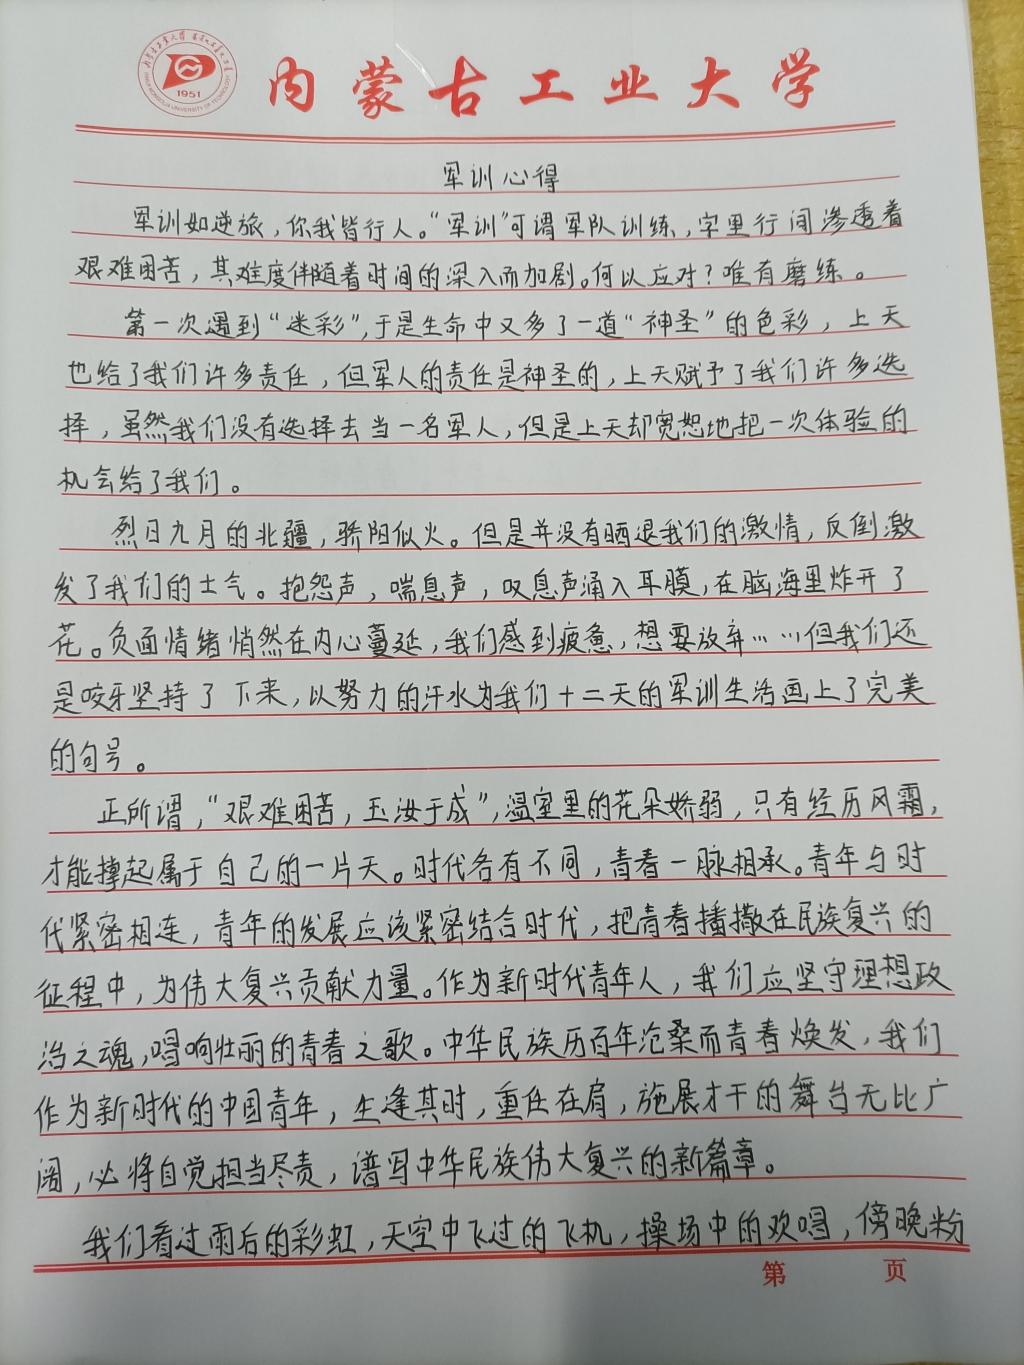 1951
INNER MONGOLIA UNIVERSITY OF TECHNOLOGY
内蒙古工业大学
军训心得
军训如逆旅，你我皆行人。“军训”可谓军队训练，字里行间渗透着
艰难困苦，其难度伴随着时间的深入而加剧。何以应对？唯有磨练。
第一次遇到“迷彩”，于是生命中又多了一道“神圣”的色彩，上天
也给了我们许多责任，但军人的责任是神圣的，上天赋予了我们许多选
择，虽然我们没有选择去当一名军人，但是上天却宽恕地把一次体验的
机会给了我们。
烈日九月的北疆，骄阳似火。但是并没有晒退我们的激情，反倒激
发了我们的士气。抱怨声，喘息声，叹息声涌入耳膜，在脑海里炸开了
花。负面情绪悄然在内心蔓延，我们感到疲惫，想要放弃……但我们还
是咬牙坚持了下来，以努力的汗水为我们十二天的军训生活画上了完美
的句号。
正所谓，“艰难困苦，玉汝于成”，温室里的花朵娇弱，只有经历风霜，
才能撑起属于自己的一片天。时代各有不同，青春一脉相承。青年与时
代紧密相连，青年的发展应该紧密结合时代，把青春播撒在民族复兴的
征程中，为伟大复兴贡献力量。作为新时代青年人，我们应坚守理想政
治之魂，唱响壮丽的青春之歌。中华民族历百年沧桑而青春焕发，我们
作为新时代的中国青年，生逢其时，重任在肩，施展才干的舞台无比广
阔，必将自觉担当尽责，谱写中华民族伟大复兴的新篇章。
我们看过雨后的彩虹，天空中飞过的飞机，操场中的欢唱，傍晚粉
第 页